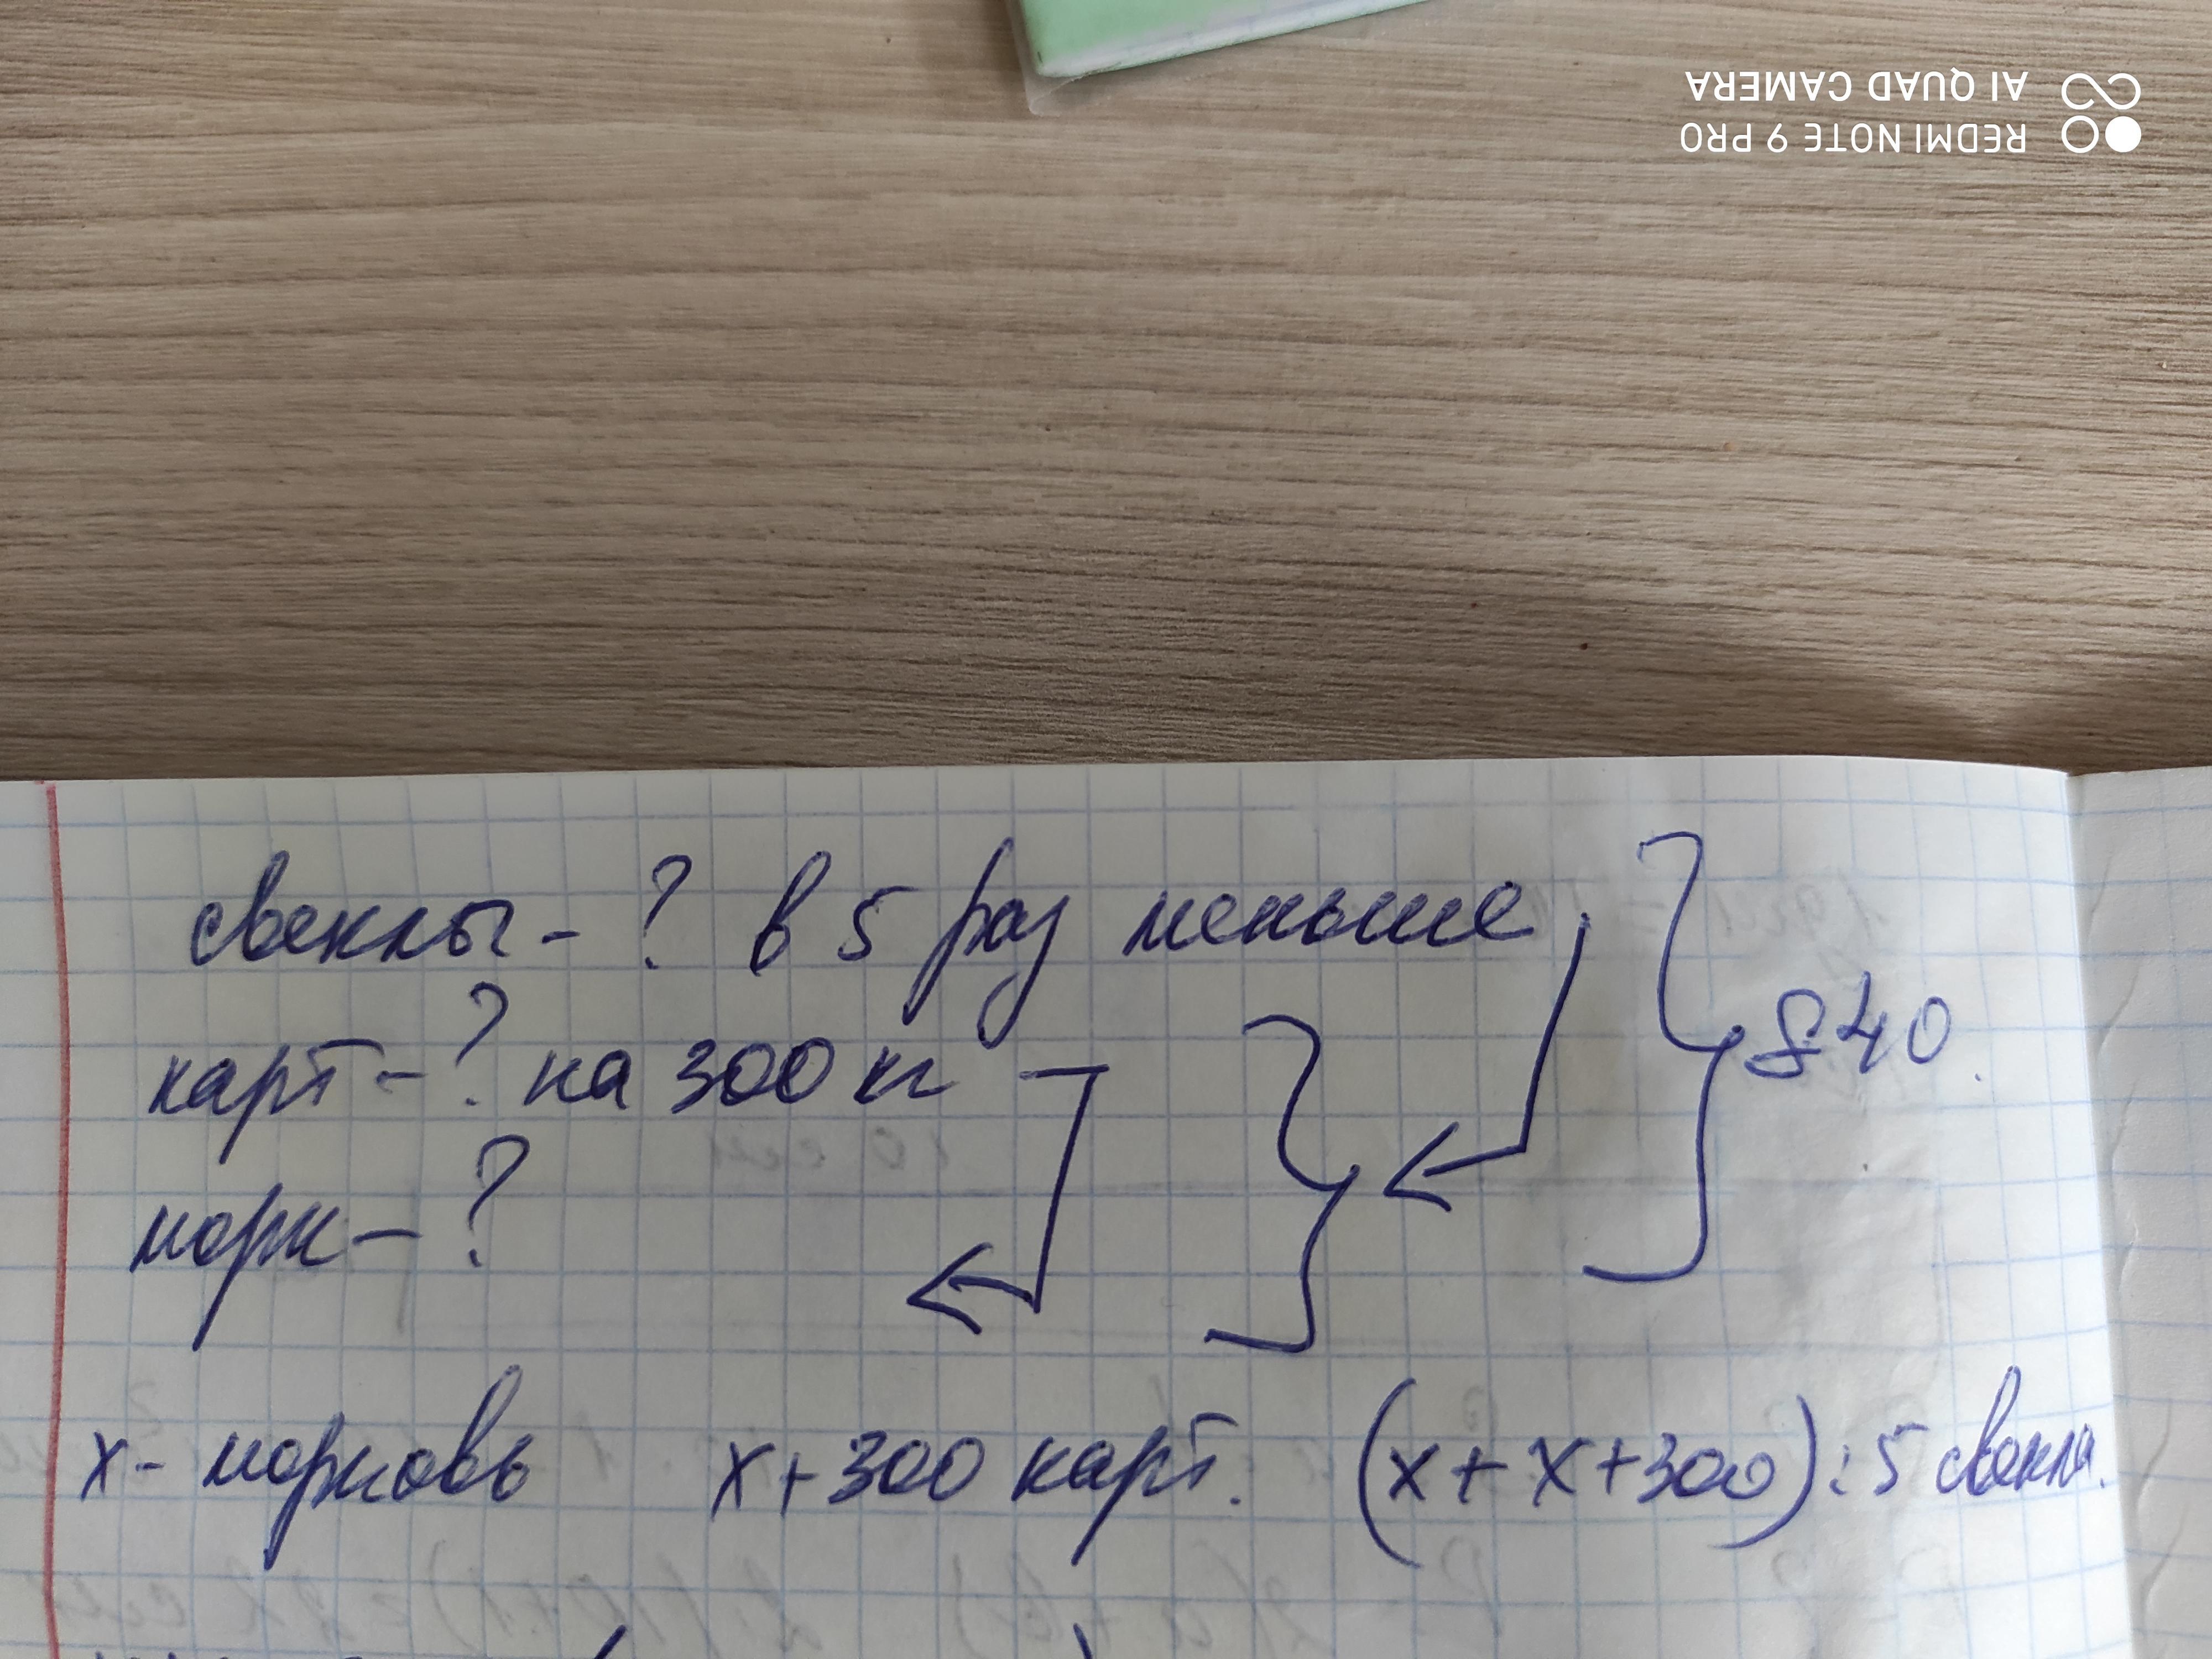 REDMI NOTE 9 PRO
AI QUAD CAMERA
свеклы - ? в 5 раз меньше
840.
карт - ? на 300 кг
морк - ?
х - морковь х + 300 карт. (х + х + 300) : 5 свекла.